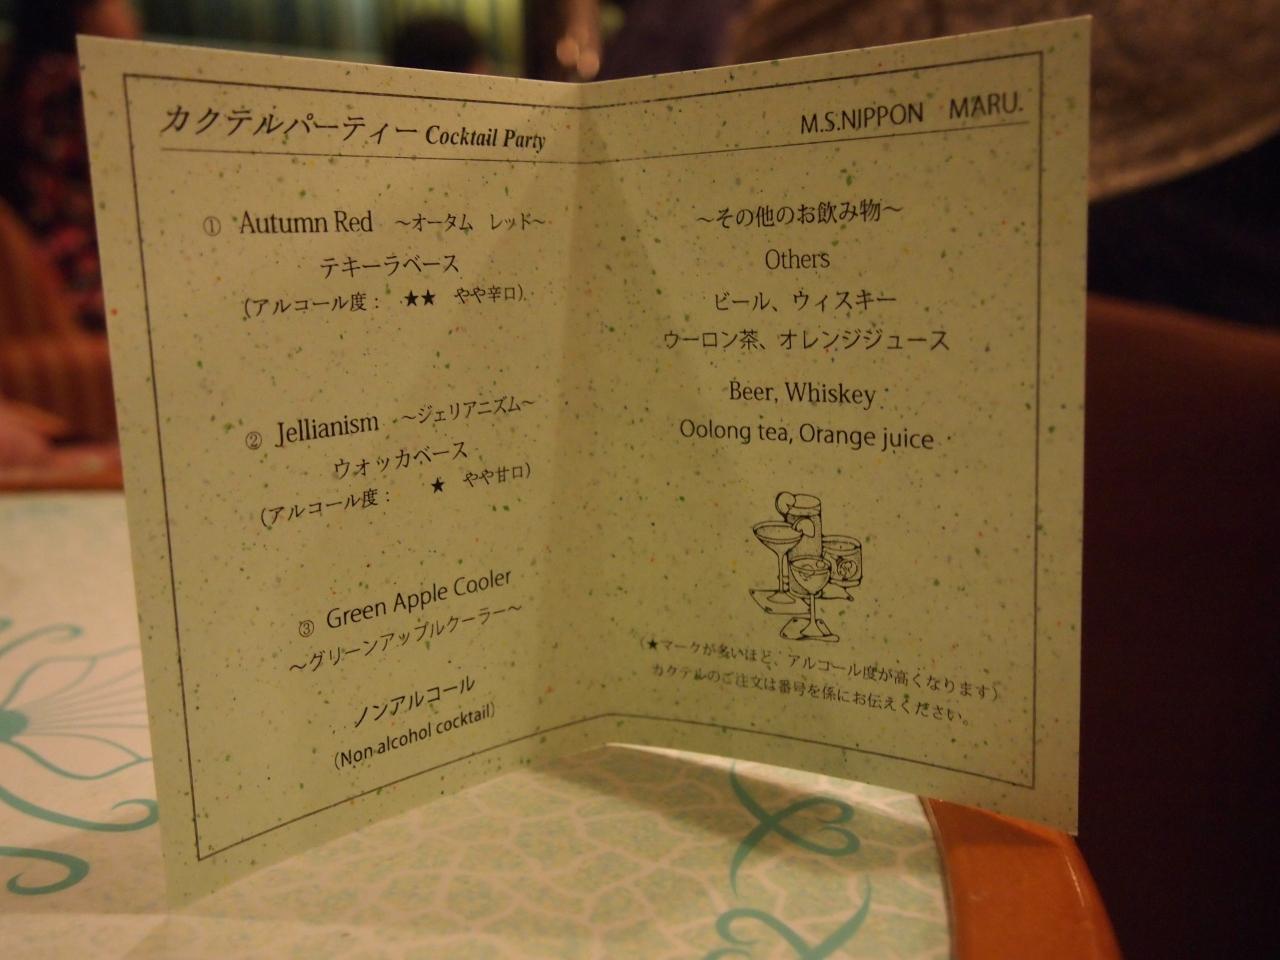 カクテルパーティー Cocktail Party
① Autumn Red ～オータム レッド～
テキーラベース
(アルコール度： ★★ やや辛口)
② Jellianism ～ジェリアニズム～
ウォッカベース
(アルコール度： ★ やや甘口)
③ Green Apple Cooler
～グリーンアップルクーラー～
ノンアルコール
(Non alcohol cocktail)
M.S.NIPPON MARU.
～その他のお飲み物～
Others
ビール、ウィスキー
ウーロン茶、オレンジジュース
Beer, Whiskey
Oolong tea, Orange juice
(★マークが多いほど、アルコール度が高くなります)
カクテルのご注文は番号を係にお伝えください。